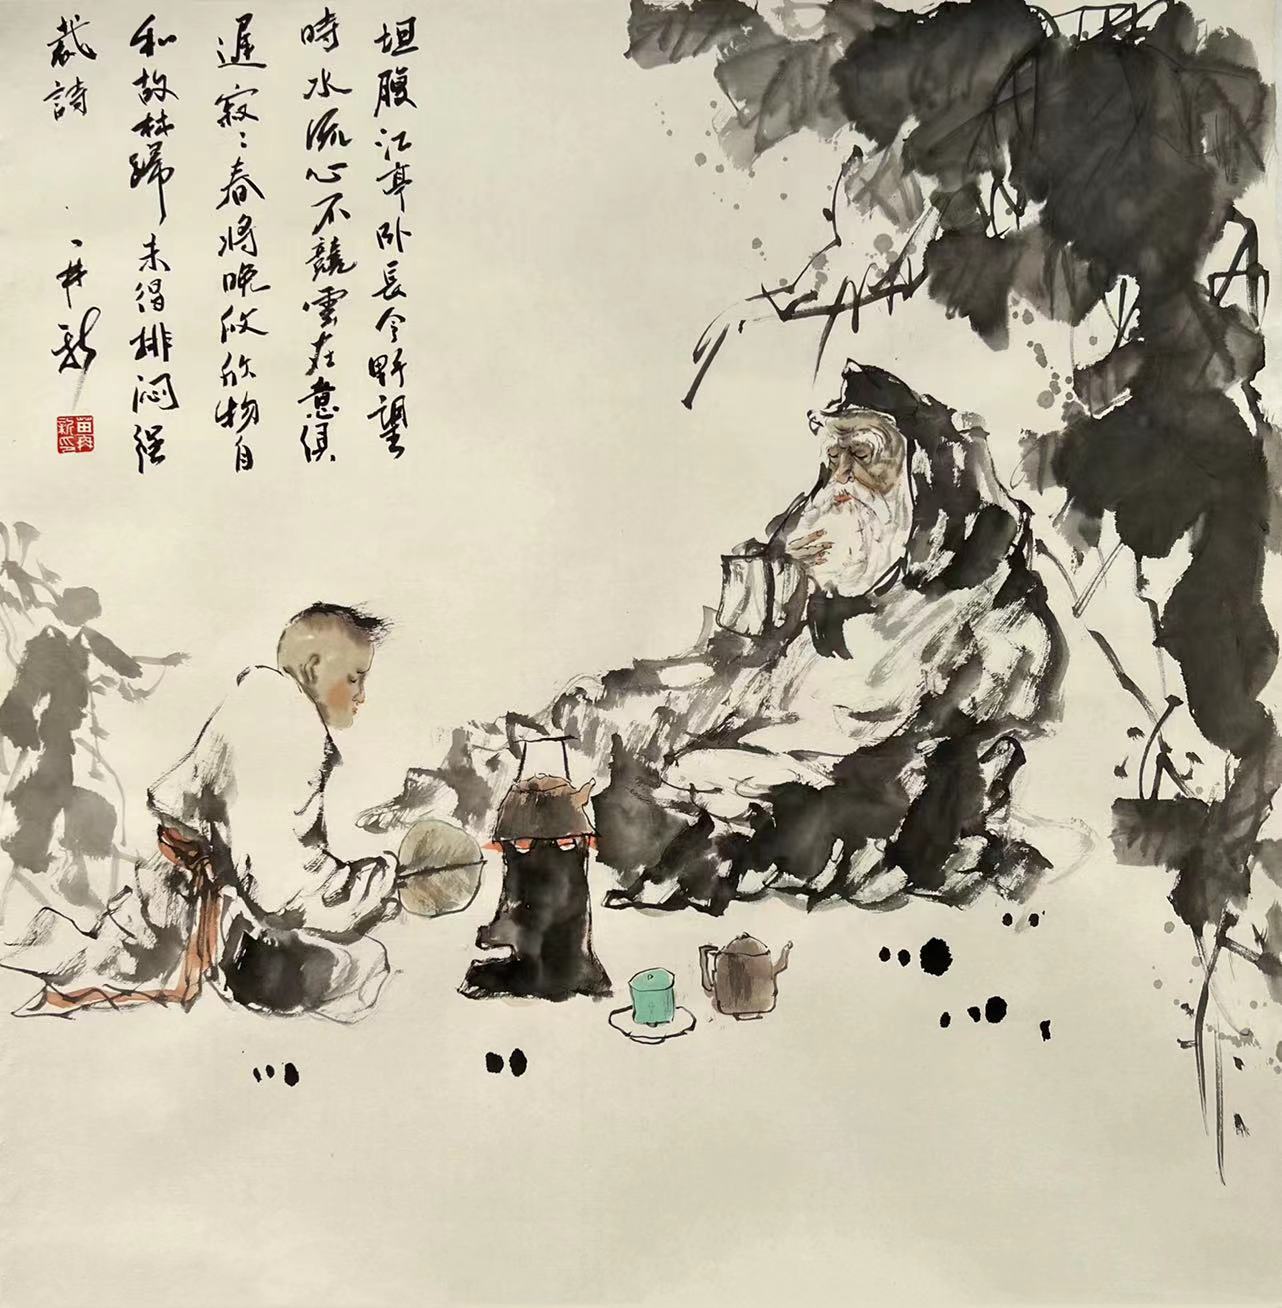 坦腹江亭卧長今野望
時水流心不競雲在意俱
遲寂〻春將晚欣欣物自
私故林歸未得排闷强
裁詩
再新
苗再新印